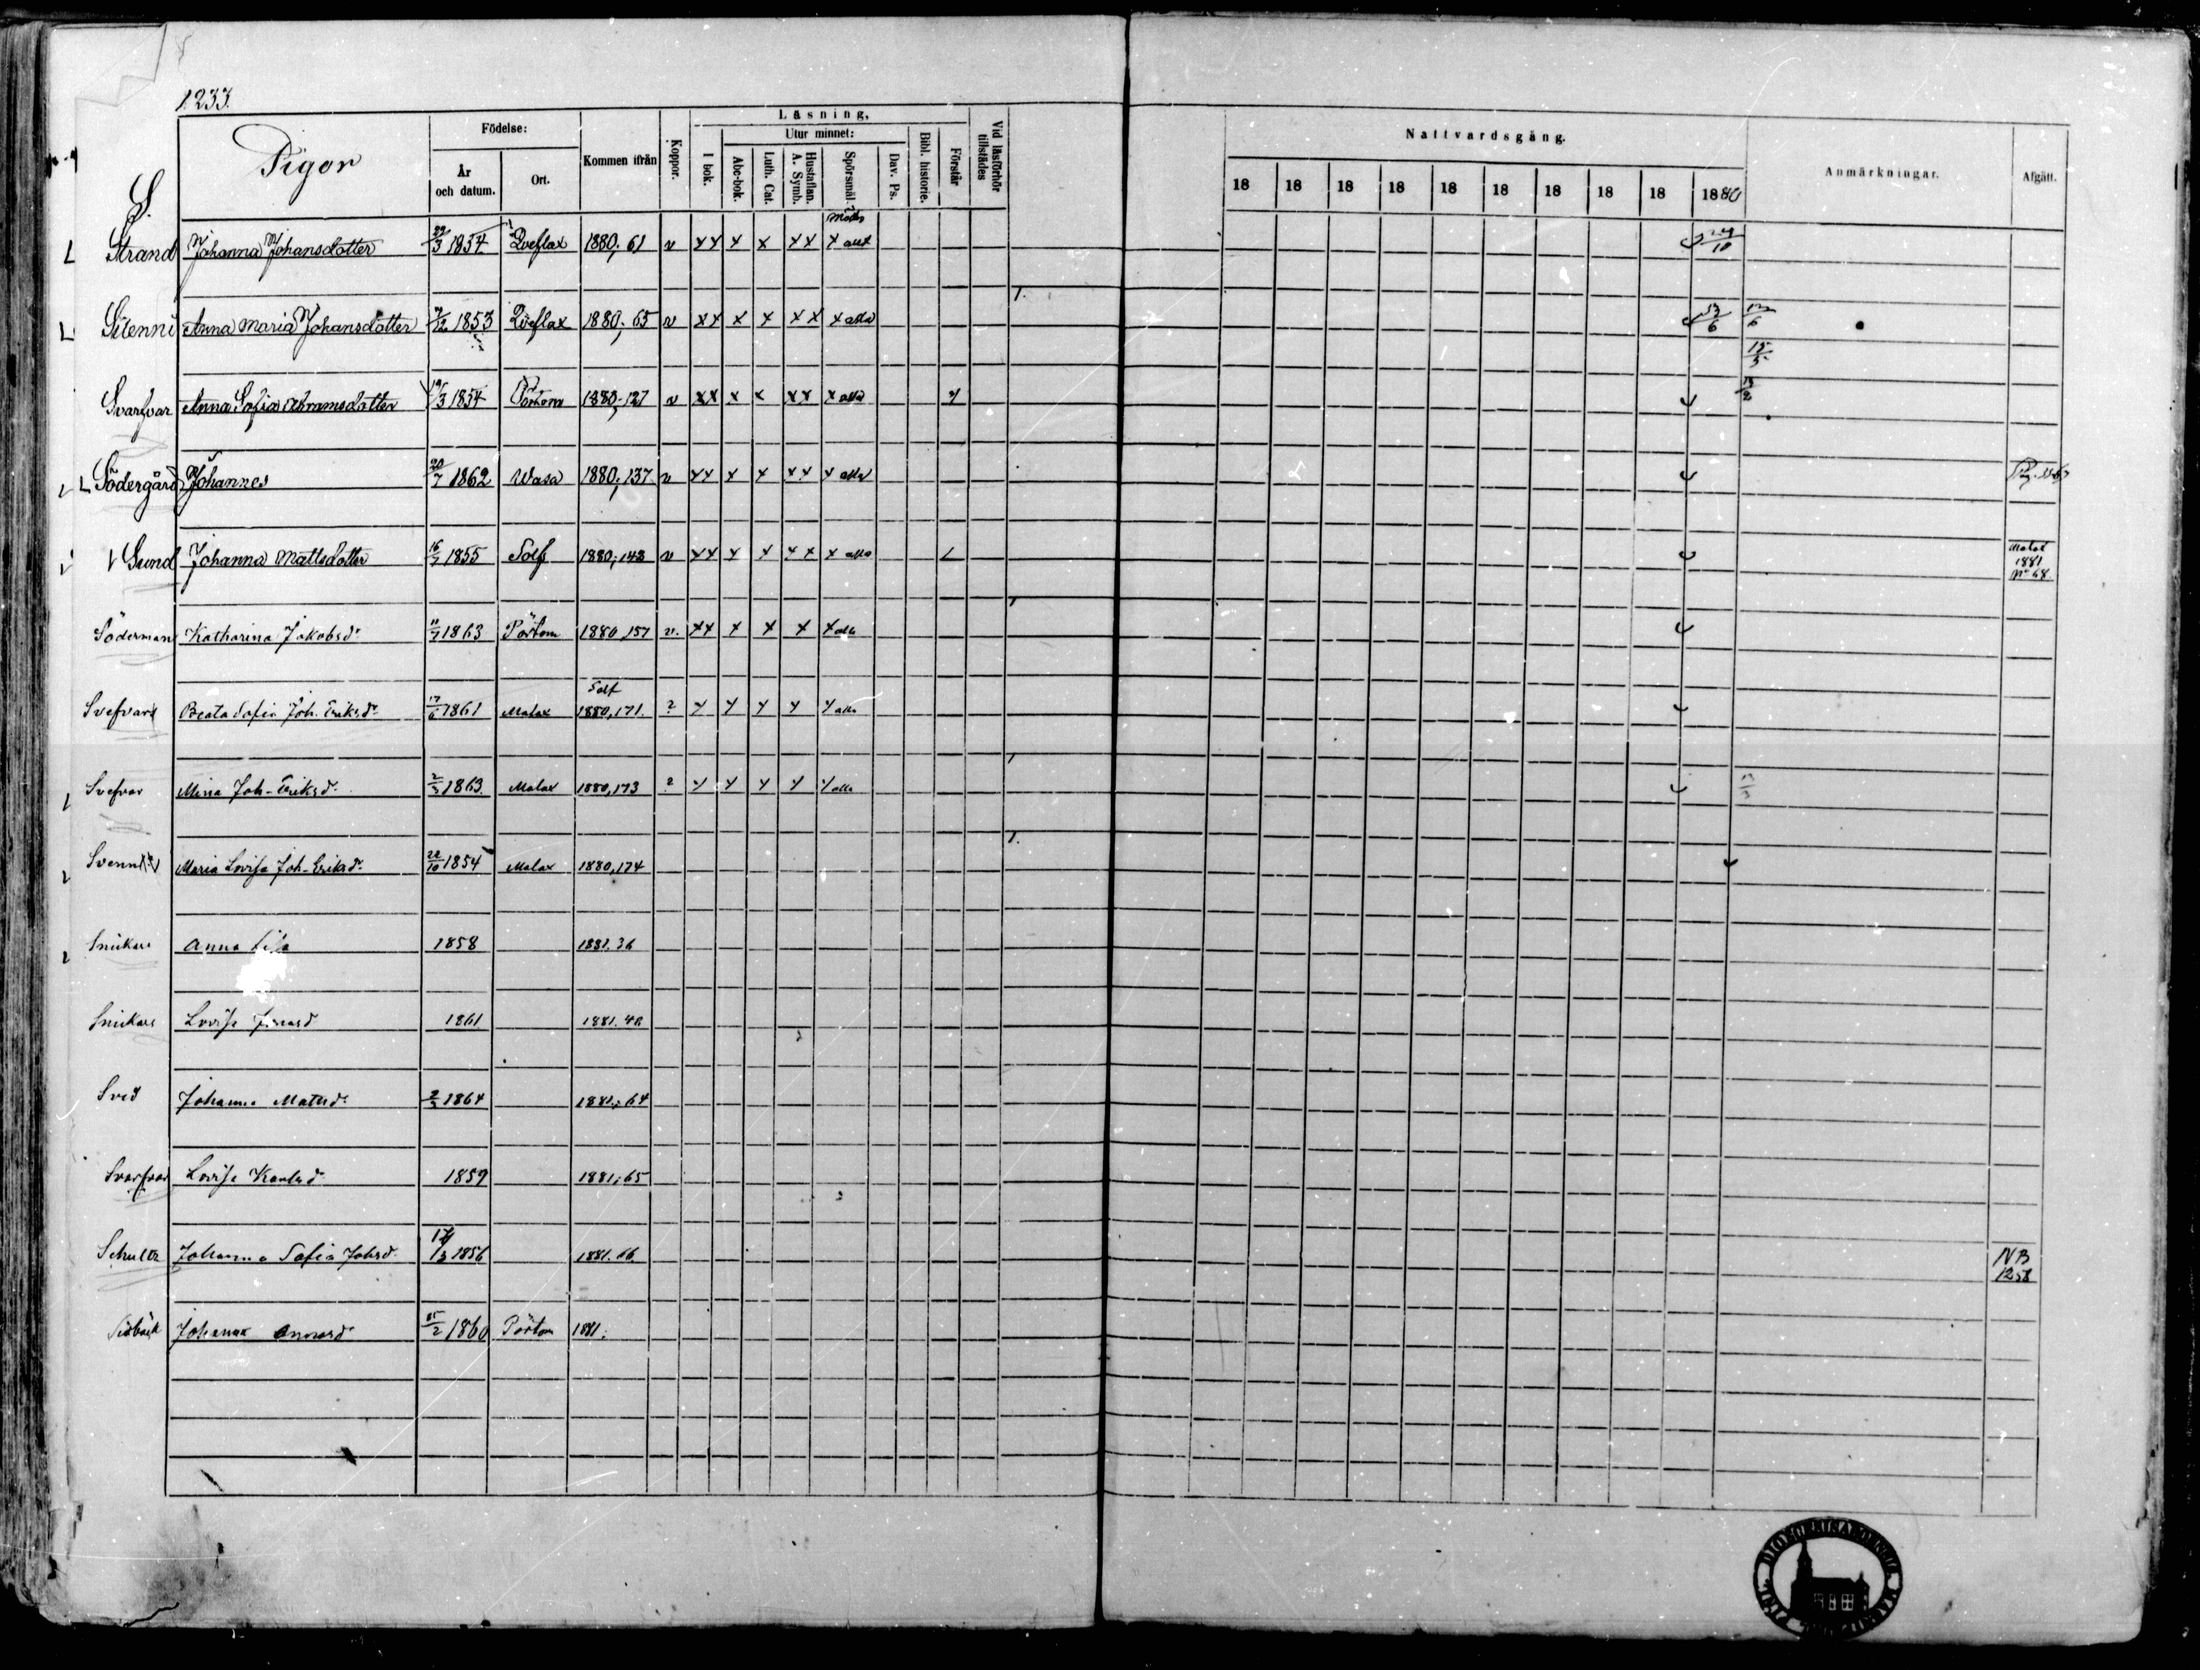 1233.
Pigor
S.
Födelse:
År och datum.
Ort.
Kommen ifrån
Koppor.
Läsning,
I bok.
Utur minnet:
Abc-bok.
Luth. Cat.
Hustaflan. A. Symb.
Spörsmål.
Dav. Ps.
Bibl. historie.
Förstår
Vid läsförhör tillstädes
Nattvardsgång.
18 18 18 18 18 18 18 18 18 1880
Anmärkningar.
Afgått.
Strand Johanna Johansdotter 29/3 1854 Qveflax 1880, 61 v xx x x xx x alla 24/10
Anna Maria Johansdotter 1853 Qveflax 1880, 65 v xx x x xx x alla 13/6
15/5
Svarfvar Anna Sofia Abramsdotter 1854 Pörtom 1880, 127 v xx x x xx x alla
Södergård Johannes 20/7 1862 Wasa 1880, 137 v xx x x xx x alla
Sund Johanna Mattsdotter 16/7 1855 Solf 1880, 148 v xx x x xx x alla Malax 1881 No 68
Söderman Katharina Jakobsdr 11/7 1863 Pörtom 1880, 157 v. xx x x x x alla
Solf
Svefvars Beata Sofia Joh. Eriksdr 17/6 1861 Malax 1880, 171. ? x x x x x alla
Svefvar Mina Joh-Eriksdr 1863. Malax 1880, 173 ? x x x x x alla
Maria Lovisa Joh-Eriksdr 22/10 1854 Malax 1880, 174
Snickars Anna 1858 1881. 36
Snickars Lovisa 1861 1881. 40
Sved Johanna Matsdr 1864 1881, 64
Svarfvar Lovisa Karlsd 1859 1881, 65
Schultz Johanna Sofia Johsd. 17/3 1856 1881. 66 NB 1258
Johanna 1860 Pörtom 1881.